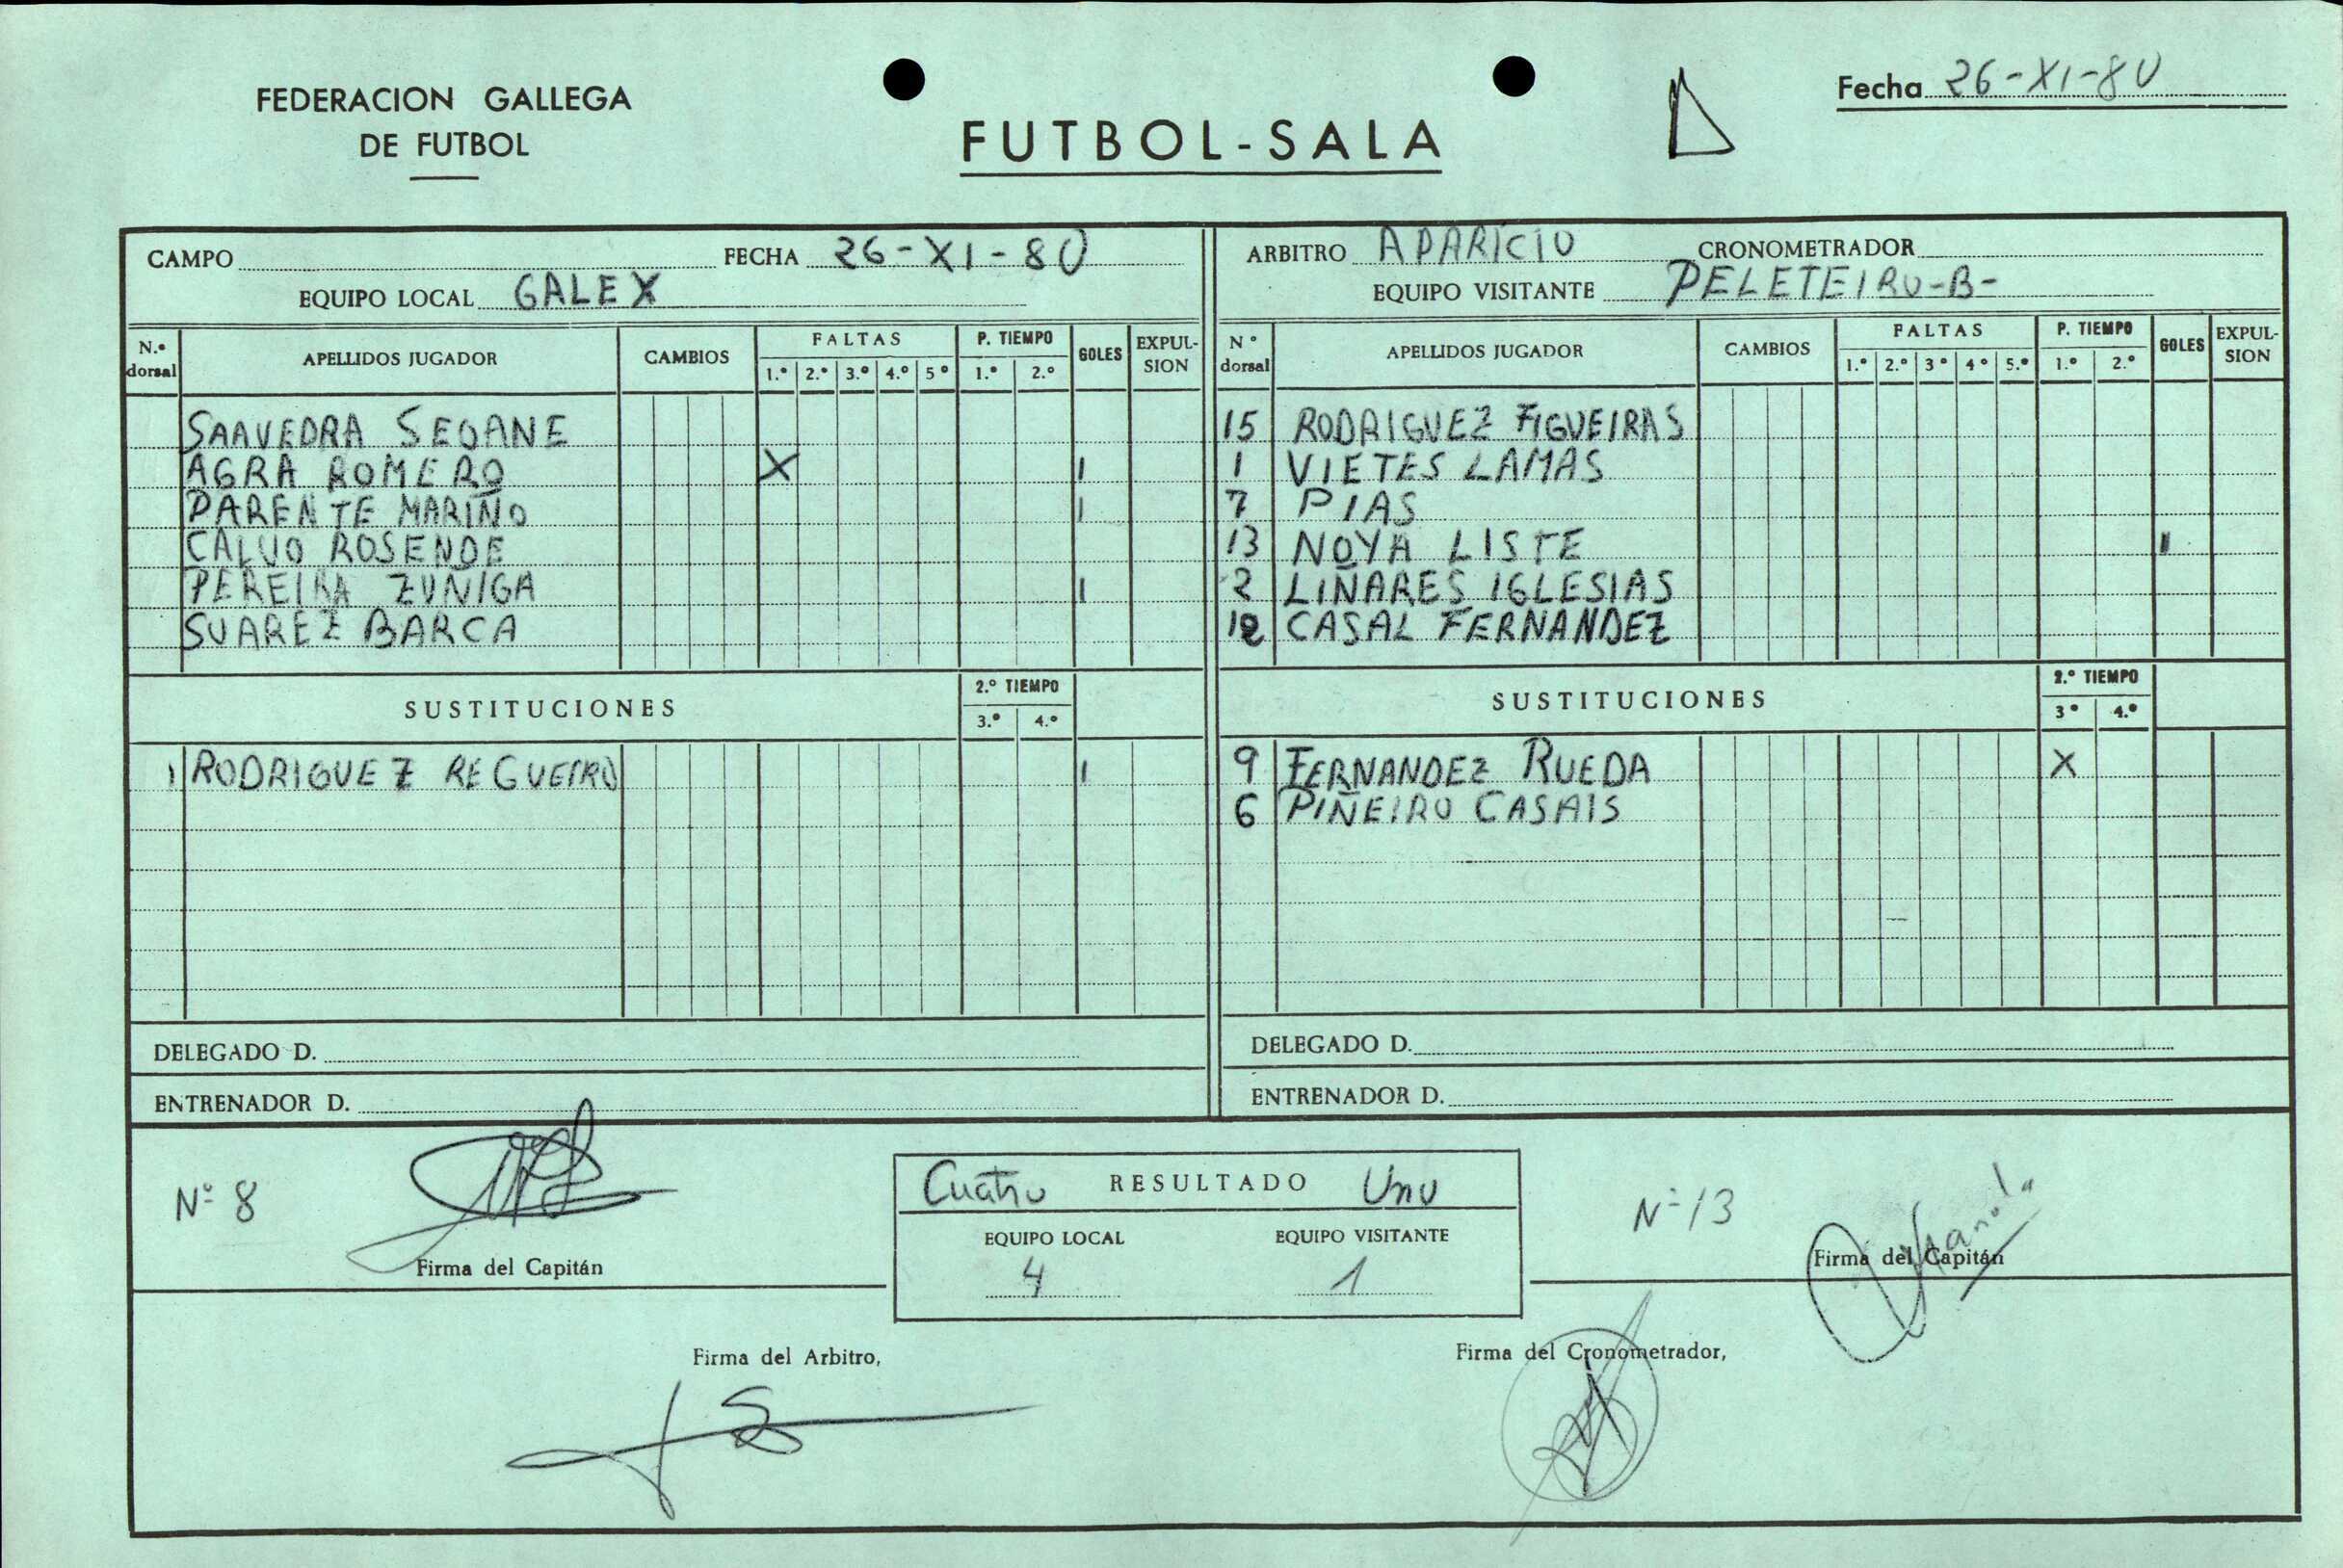 FEDERACION GALLEGA
DE FUTBOL
FUTBOL-SALA
Fecha 26-XI-80
CAMPO FECHA 26-XI-80
EQUIPO LOCAL GALEX
N.º dorsal APELLIDOS JUGADOR CAMBIOS FALTAS 1.º 2.º 3.º 4.º 5º P. TIEMPO 1.º 2.º GOLES EXPULSION
SAAVEDRA SEOANE
AGRA ROMERO X I
PARENTE MARIÑO I
CALVO ROSENDE
PEREIRA ZUÑIGA I
SUAREZ BARCA
SUSTITUCIONES 2.º TIEMPO 3.º 4.º
1 RODRIGUEZ REGUEIRO I
DELEGADO D.
ENTRENADOR D.
ARBITRO APARICIO CRONOMETRADOR
EQUIPO VISITANTE PELETEIRO-B-
Nº dorsal APELLIDOS JUGADOR CAMBIOS FALTAS 1.º 2.º 3º 4º 5.º P. TIEMPO 1.º 2.º GOLES EXPULSION
15 RODRIGUEZ FIGUEIRAS
1 VIETES LAMAS
7 PIAS
13 NOYA LISTE I
2 LIÑARES IGLESIAS
12 CASAL FERNANDEZ
SUSTITUCIONES 2.º TIEMPO 3º 4.º
9 FERNANDEZ RUEDA X
6 PIÑEIRO CASAIS
DELEGADO D.
ENTRENADOR D.
Nº 8
Firma del Capitán
Cuatro RESULTADO Uno
EQUIPO LOCAL EQUIPO VISITANTE
4 1
Nº 13
Firma del Capitán
Firma del Arbitro,
Firma del Cronometrador,